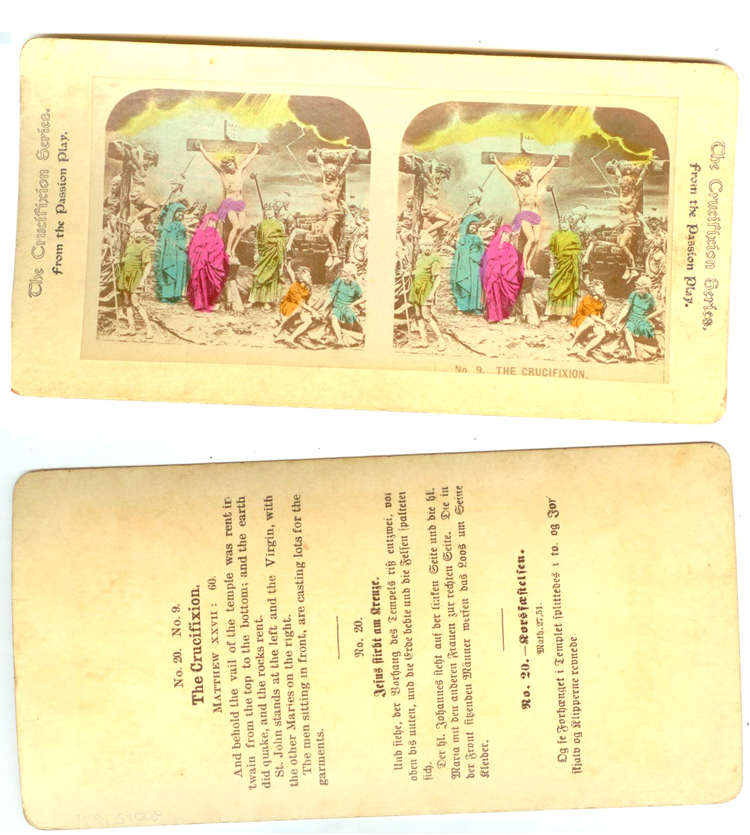 The Crucifixion Series.
from the Passion Play.
No. 9. THE CRUCIFIXION.
The Crucifixion Series,
from the Passion Play.
No. 20. No. 9.
The Crucifixion.
MATTHEW XXVII: 60.
And behold the vail of the temple was rent in
twain from the top to the bottom; and the earth
did quake, and the rocks rent.
St. John stands at the left and the Virgin, with
the other Maries on the right.
The men sitting in front, are casting lots for the
garments.
No. 20.
Jesus stirbt am Kreuze.
Und siehe, der Vorhang des Tempels riß entzwei, von
oben bis unten, und die Erde bebte und die Felsen spalteten
sich.
Der hl. Johannes steht auf der linken Seite und die hl.
Maria mit den anderen Frauen zur rechten Seite. Die in
der Front sitzenden Männer werfen das Loos um Seine
Kleider.
No. 20.—Korsfæstelsen.
Math. 27, 51.
Og se Forhænget i Templet splittedes i to, og Jor
skjalv og Klipperne revnede.